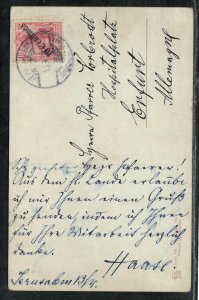 Herrn Pfarrer Horbrodt
Hospitalplatz
Erfurt
Allemagne
Herr Pfarrer!
Aus dem h. Lande erlaube
ich mir Ihnen einen Gruß
zu senden, indem ich Ihnen
für Ihre Mitarbeit herzlich
danke.
Haase
Jerusalem 13/4.